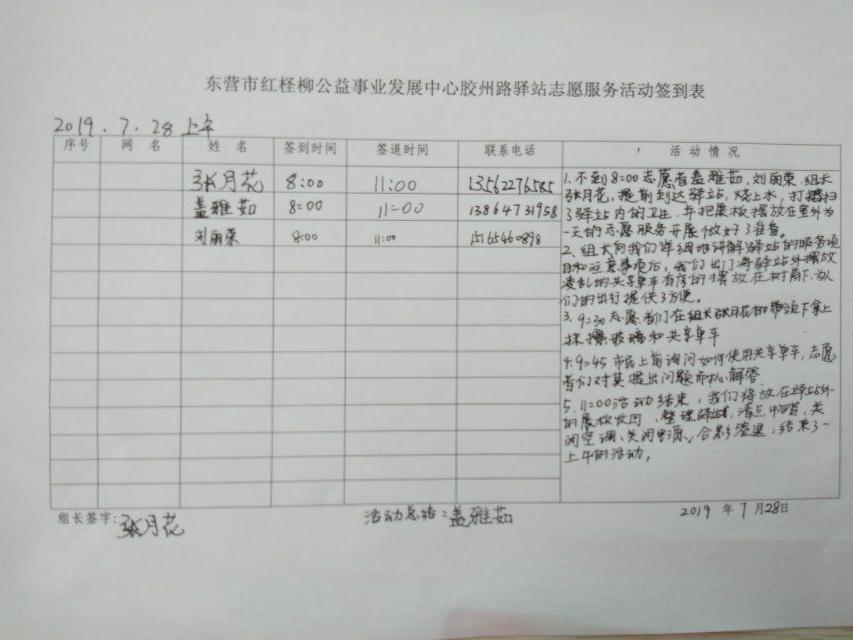 东营市红柽柳公益事业发展中心胶州路驿站志愿服务活动签到表
2019.7.28上午
序号 网名 姓名 签到时间 签退时间 联系电话 活动情况
张月花 8:00 11:00 13562276585
盖雅茹 8:00 11:00 13864731958
刘丽荣 8:00 11:00 15165460898
1.不到8:00志愿者盖雅茹,刘丽荣,组长
张月花,提前到达驿站,烧上水,打扫
了驿站内的卫生,并把展板摆放在室外为
一天的志愿服务开展做好了准备。
2.组长向我们详细地讲解驿站的服务项
目和注意事项后,我们出门将驿站外摆放
凌乱的共享单车有序的摆放在树荫下,为人
们的出行提供了方便。
3.9:30志愿者们在组长张月花的带领下拿上
抹擦玻璃和共享单车
4.9:45市民上前询问如何使用共享单车,志愿
者们对其提出问题而以解答
5.11:00活动结束,我们将放在驿站外
的展板收回,整理驿站,清点物品,关
闭空调、关闭电源。合影签退,结束了一
上午的活动。
组长签字:张月花 活动总结:盖雅茹 2019年7月28日